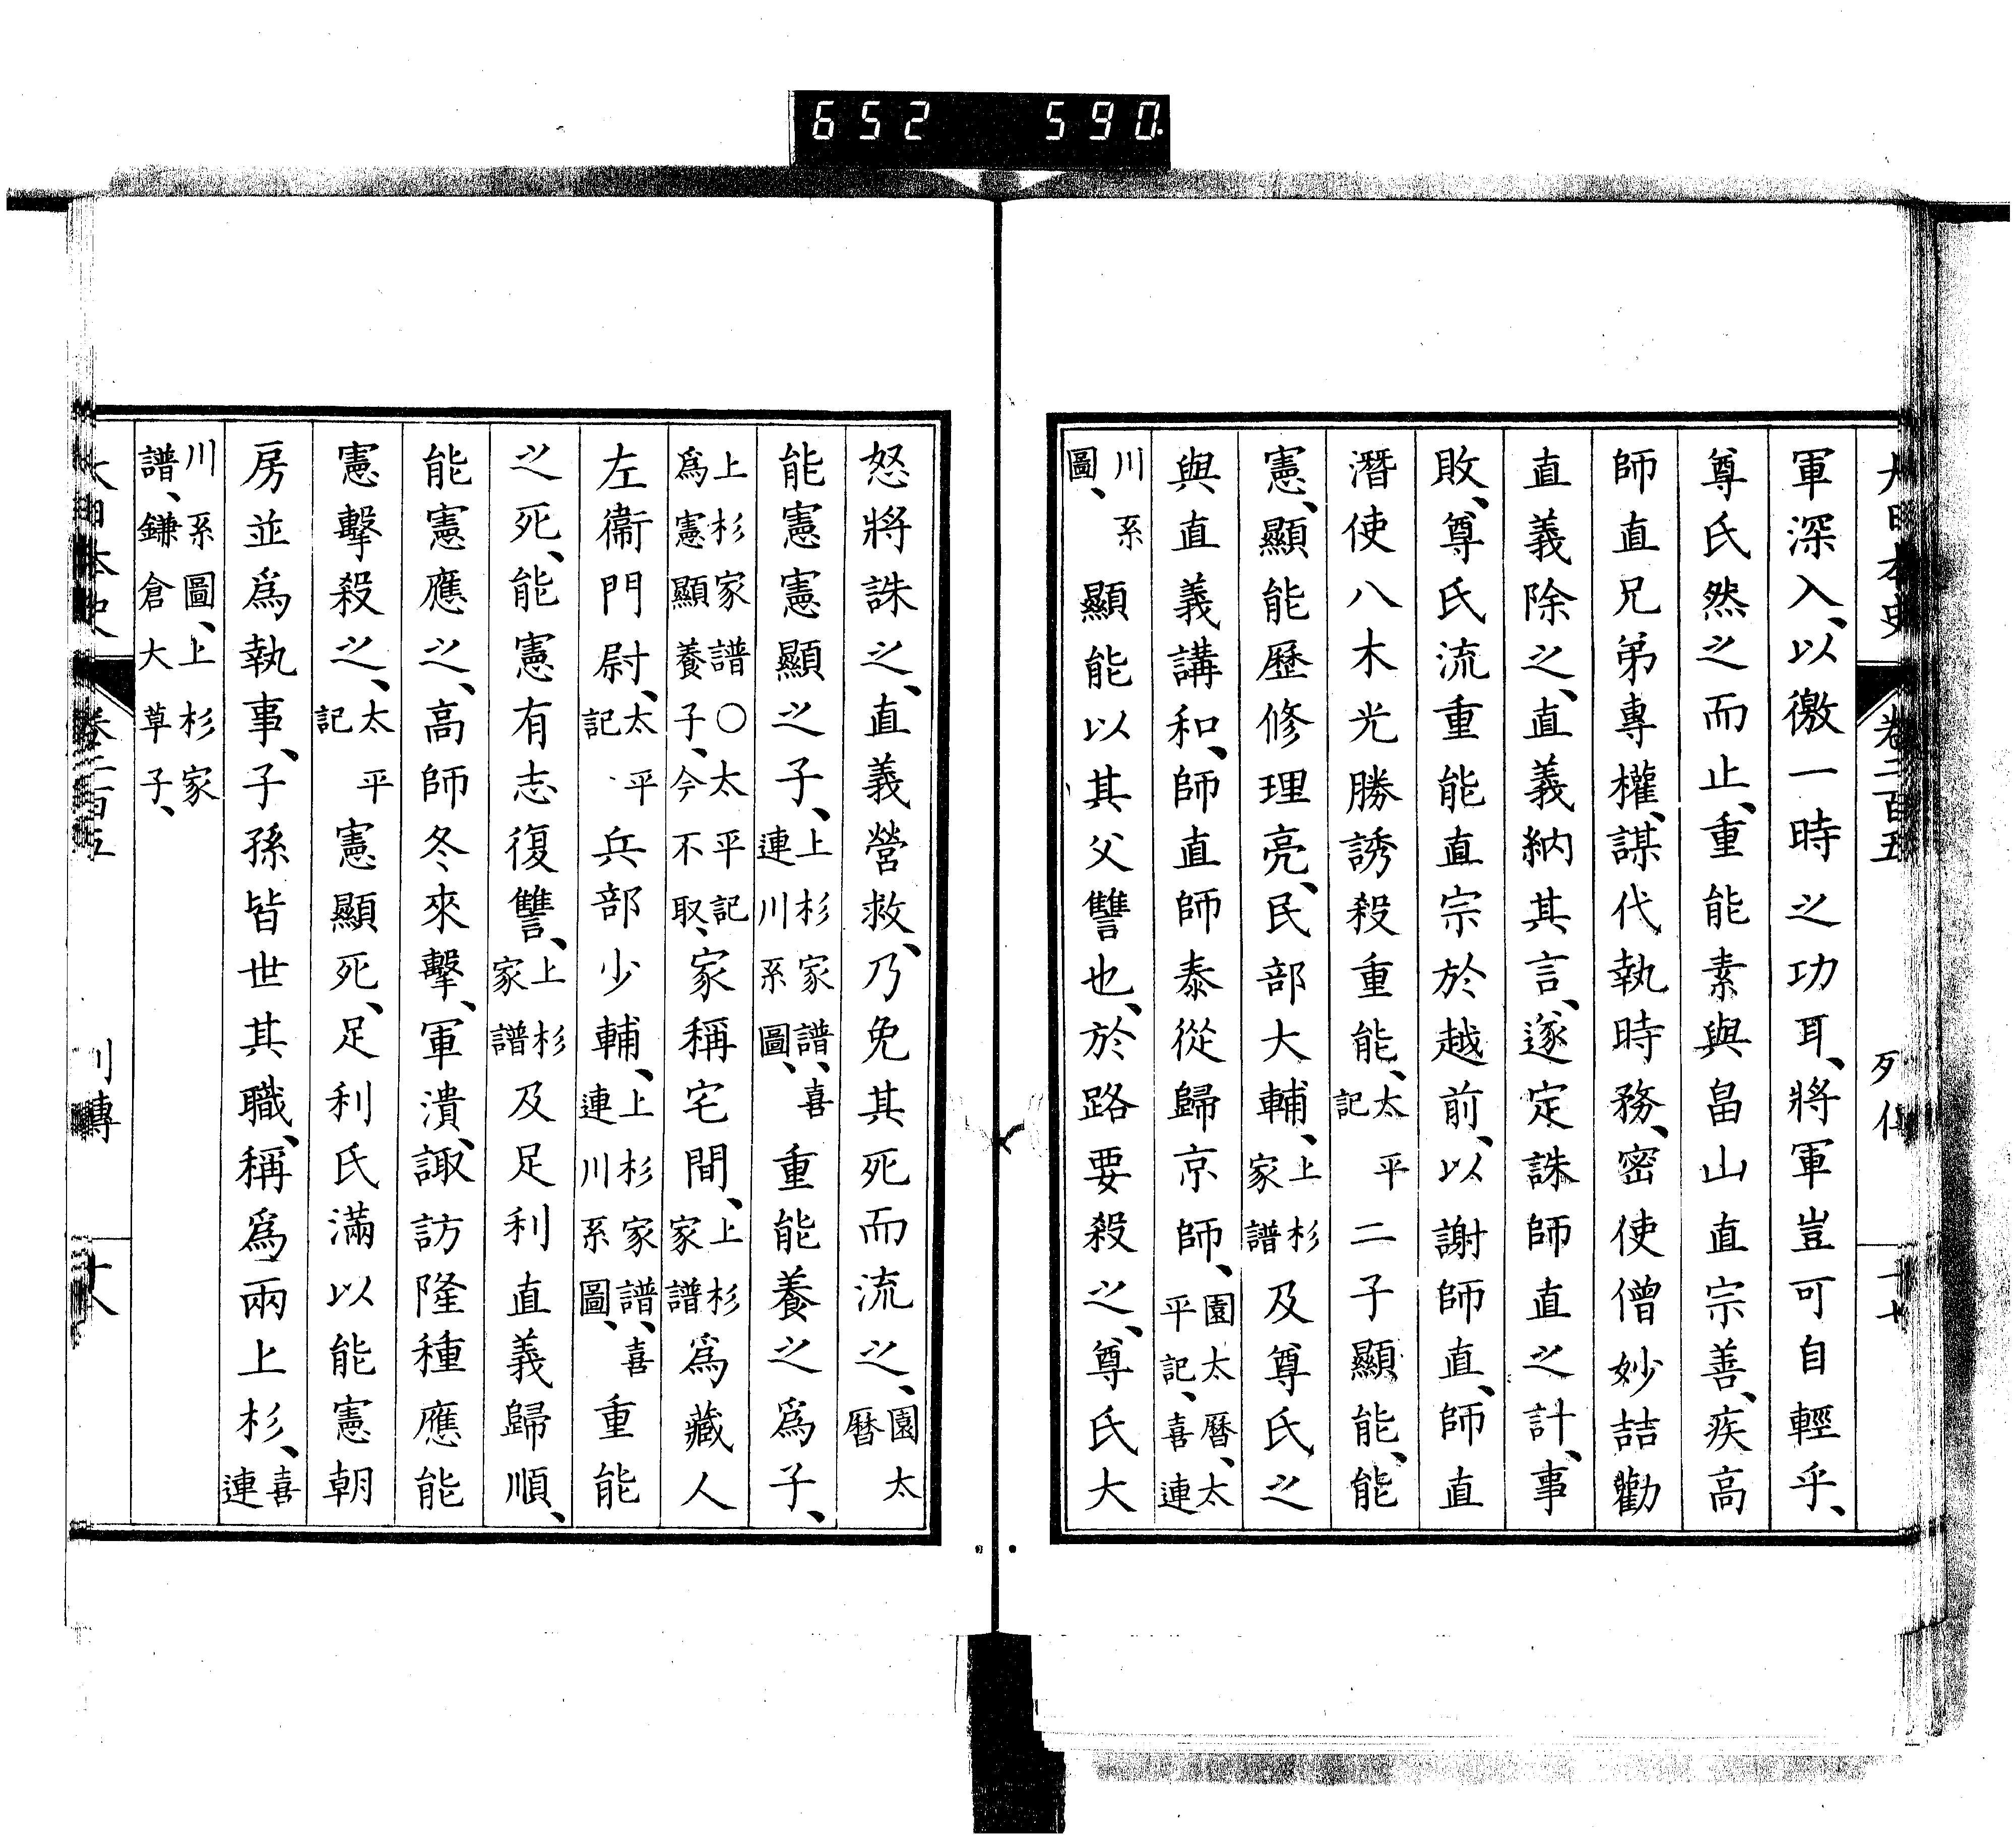 652 590.
大日本史 卷二百五 列傳 十七
軍深入、以徼一時之功耳、將軍豈可自輕乎、
尊氏然之而止、重能素與畠山直宗善、疾高
師直兄弟專權、謀代執時務、密使僧妙喆勸
直義除之、直義納其言、遂定誅師直之計、事
敗、尊氏流重能直宗於越前、以謝師直、師直
潛使八木光勝誘殺重能、太平記二子顯能、能
憲、顯能歷修理亮、民部大輔、上杉家譜及尊氏之
與直義講和、師直師泰從歸京師、園太曆、太平記、喜連
川系圖、顯能以其父讐也、於路要殺之、尊氏大
怒將誅之、直義營救、乃免其死而流之、園太曆
能憲憲顯之子、上杉家譜、喜連川系圖、重能養之爲子、
上杉家譜○太平記爲憲顯養子、今不取、家稱宅間、上杉家譜爲藏人
左衞門尉、太平記兵部少輔、上杉家譜、喜連川系圖、重能
之死、能憲有志復讐、上杉家譜及足利直義歸順、
能憲應之、高師冬來擊、軍潰、諏訪隆種應能
憲擊殺之、太平記憲顯死、足利氏滿以能憲朝
房並爲執事、子孫皆世其職、稱爲兩上杉、喜連
川系圖、上杉家譜、鎌倉大草子、
大日本史 卷二百五 列傳 十八